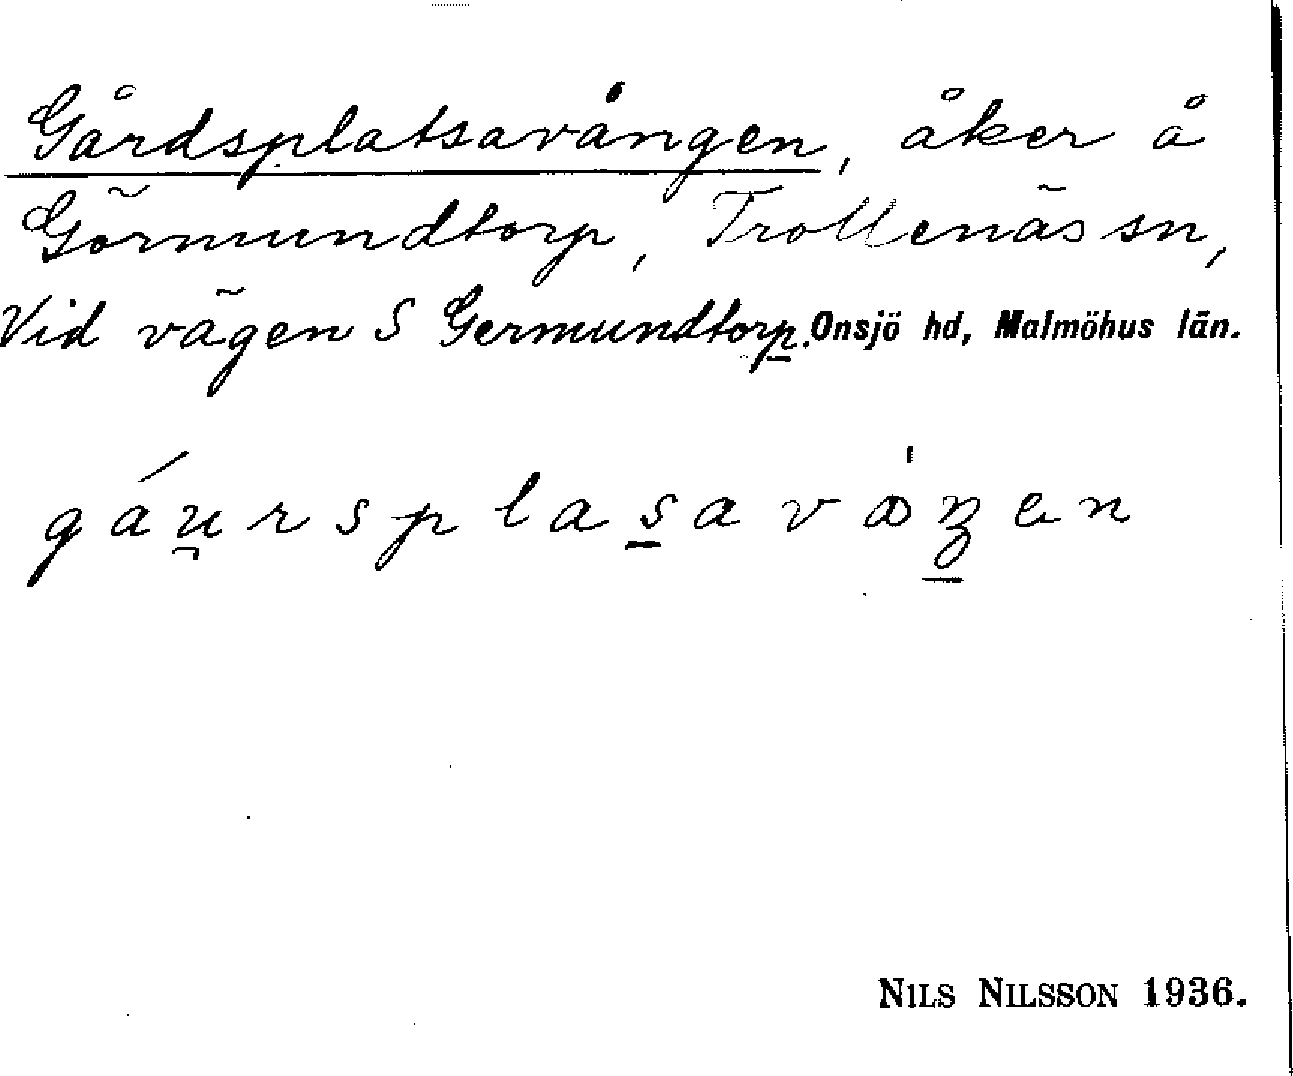 Gårdsplatsavången, åker å
Görmundtorp, Trollenäs sn,
Vid vägen S Germundtorp. Onsjö hd, Malmöhus län.
gáu̯rsplas̲avåŋ̲en
NILS NILSSON 1936.